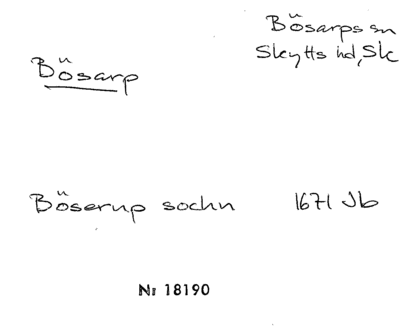 Bösarps sn
Skytts hd, Sk
Bösarp
Böserup sochn 1671 Jb
Nr 18190